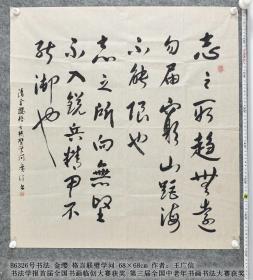 志之所趋無遠
勿届窮山距海
不能限也
志之所向無堅
不入銳兵精甲不
能御也
清金纓格言联璧学问 广信书
86326号书法 金缨 格言联璧学问 68×68cm 作者：王广信
书法学报首届全国书画临创大赛获奖 第三届全国中老年书画书法大赛获奖